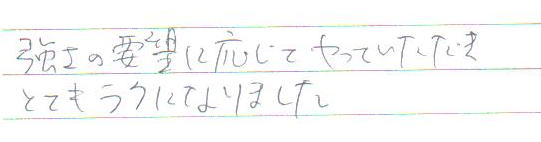 強さの要望に応じてやっていただき
とてもラクになりました